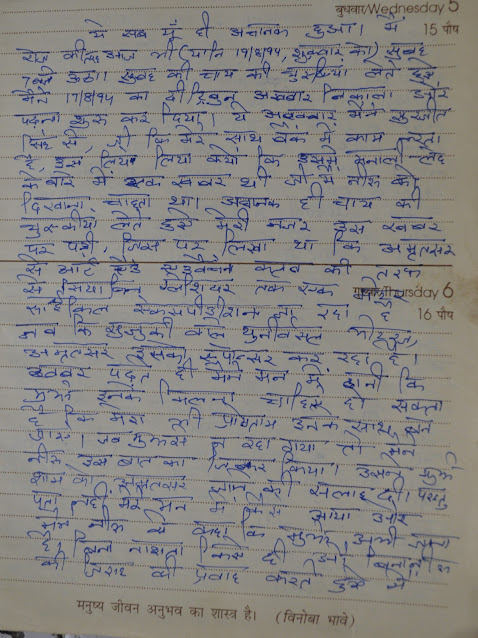 बुधवार/Wednesday 5
15 पौष
ये सब यूँ ही अचानक हुआ। मैं
रोज की तरह आज भी (यानि 19/8/94, शुक्रवार का) सुबह
7 बजे उठा। सुबह की चाय की चुस्कियां लेते हुए
मैंने 17/8/94 का दी ट्रिब्यून अखबार निकाला और
पढ़ना शुरू कर दिया। ये अखबार मैंने सुरजीत
सिंह से, जो कि मेरे साथ बैंक में काम करता
है, इस लिया लिया क्यों कि इसमें मनाली लेह
के बारे में एक खबर थी जो मैं नीरू को
दिखाना चाहता था। अचानक ही चाय की
चुस्कीयां लेते हुऐ मेरी नजर इस खबर
पर पड़ी, जिस पर लिखा था कि अमृतसर
से की तरफ
से सियाचिन ग्लेशियर तक एक
गुरुवार/Thursday 6
16 पौष
साईकिल एक्सपीडीशन जा रहा है
जब कि सुजुकी वाले युनीवर्सल
अमृतसर इसको स्पांसर कर रहा है।
खबर पढ़ते ही मैंने मन में ठानी कि
मुझे इनसे मिलना चाहिए हो सकता
है कि मेरा भी प्रोग्राम उनके साथ बन
जाए। जब मुझसे न रहा गया तो मैंने
नीरू इस बात का जिक्र किया। उसने मुझे
शाम को अमृतसर जाने की सलाह दी। परन्तु
पता नहीं मेरे मन में आया और
मैंने नीरू से कहा कि मुझे अभी जाना
है, बिना नाश्ता किये ही
की परवाह करते हुऐ मैं
मनुष्य जीवन अनुभव का शास्त्र है। (विनोबा भावे)